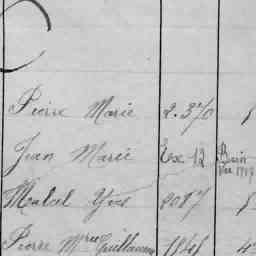 Pierre Marie 2.370
Jean Marie Ex 12
Mabel Yves 2087
Pierre Mie Guillaume 1848